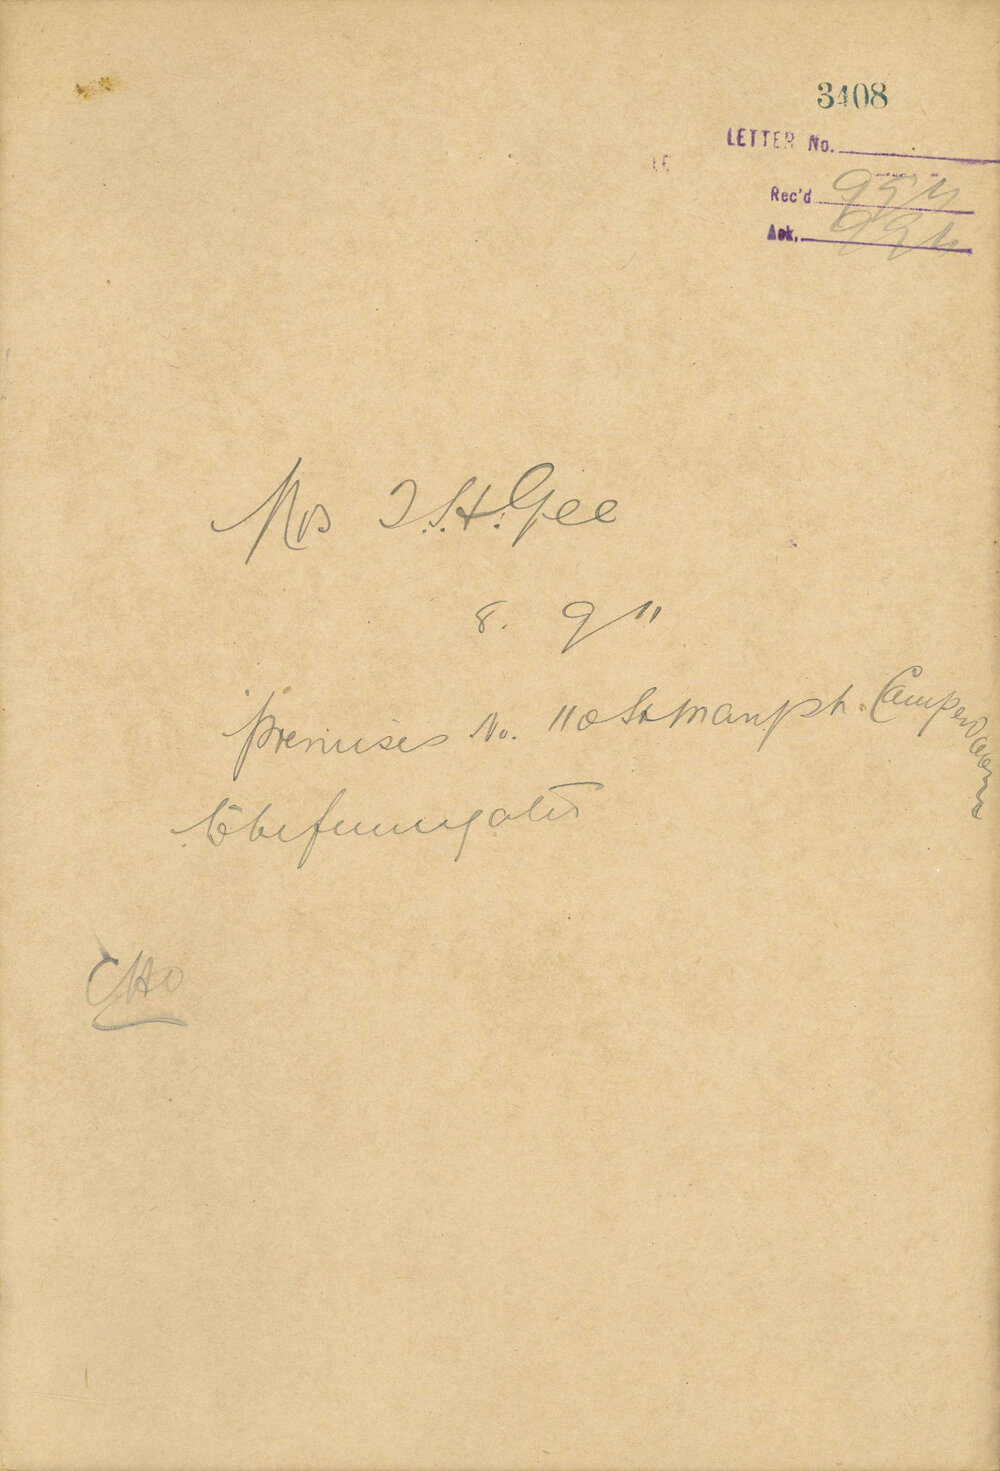 3408
LETTER No.
Rec'd
Ack.
Mrs J.S.H. Gee
8. 9 11
Premises No. 110 St Mary ph. Camperdown
To be fumigated
CHO